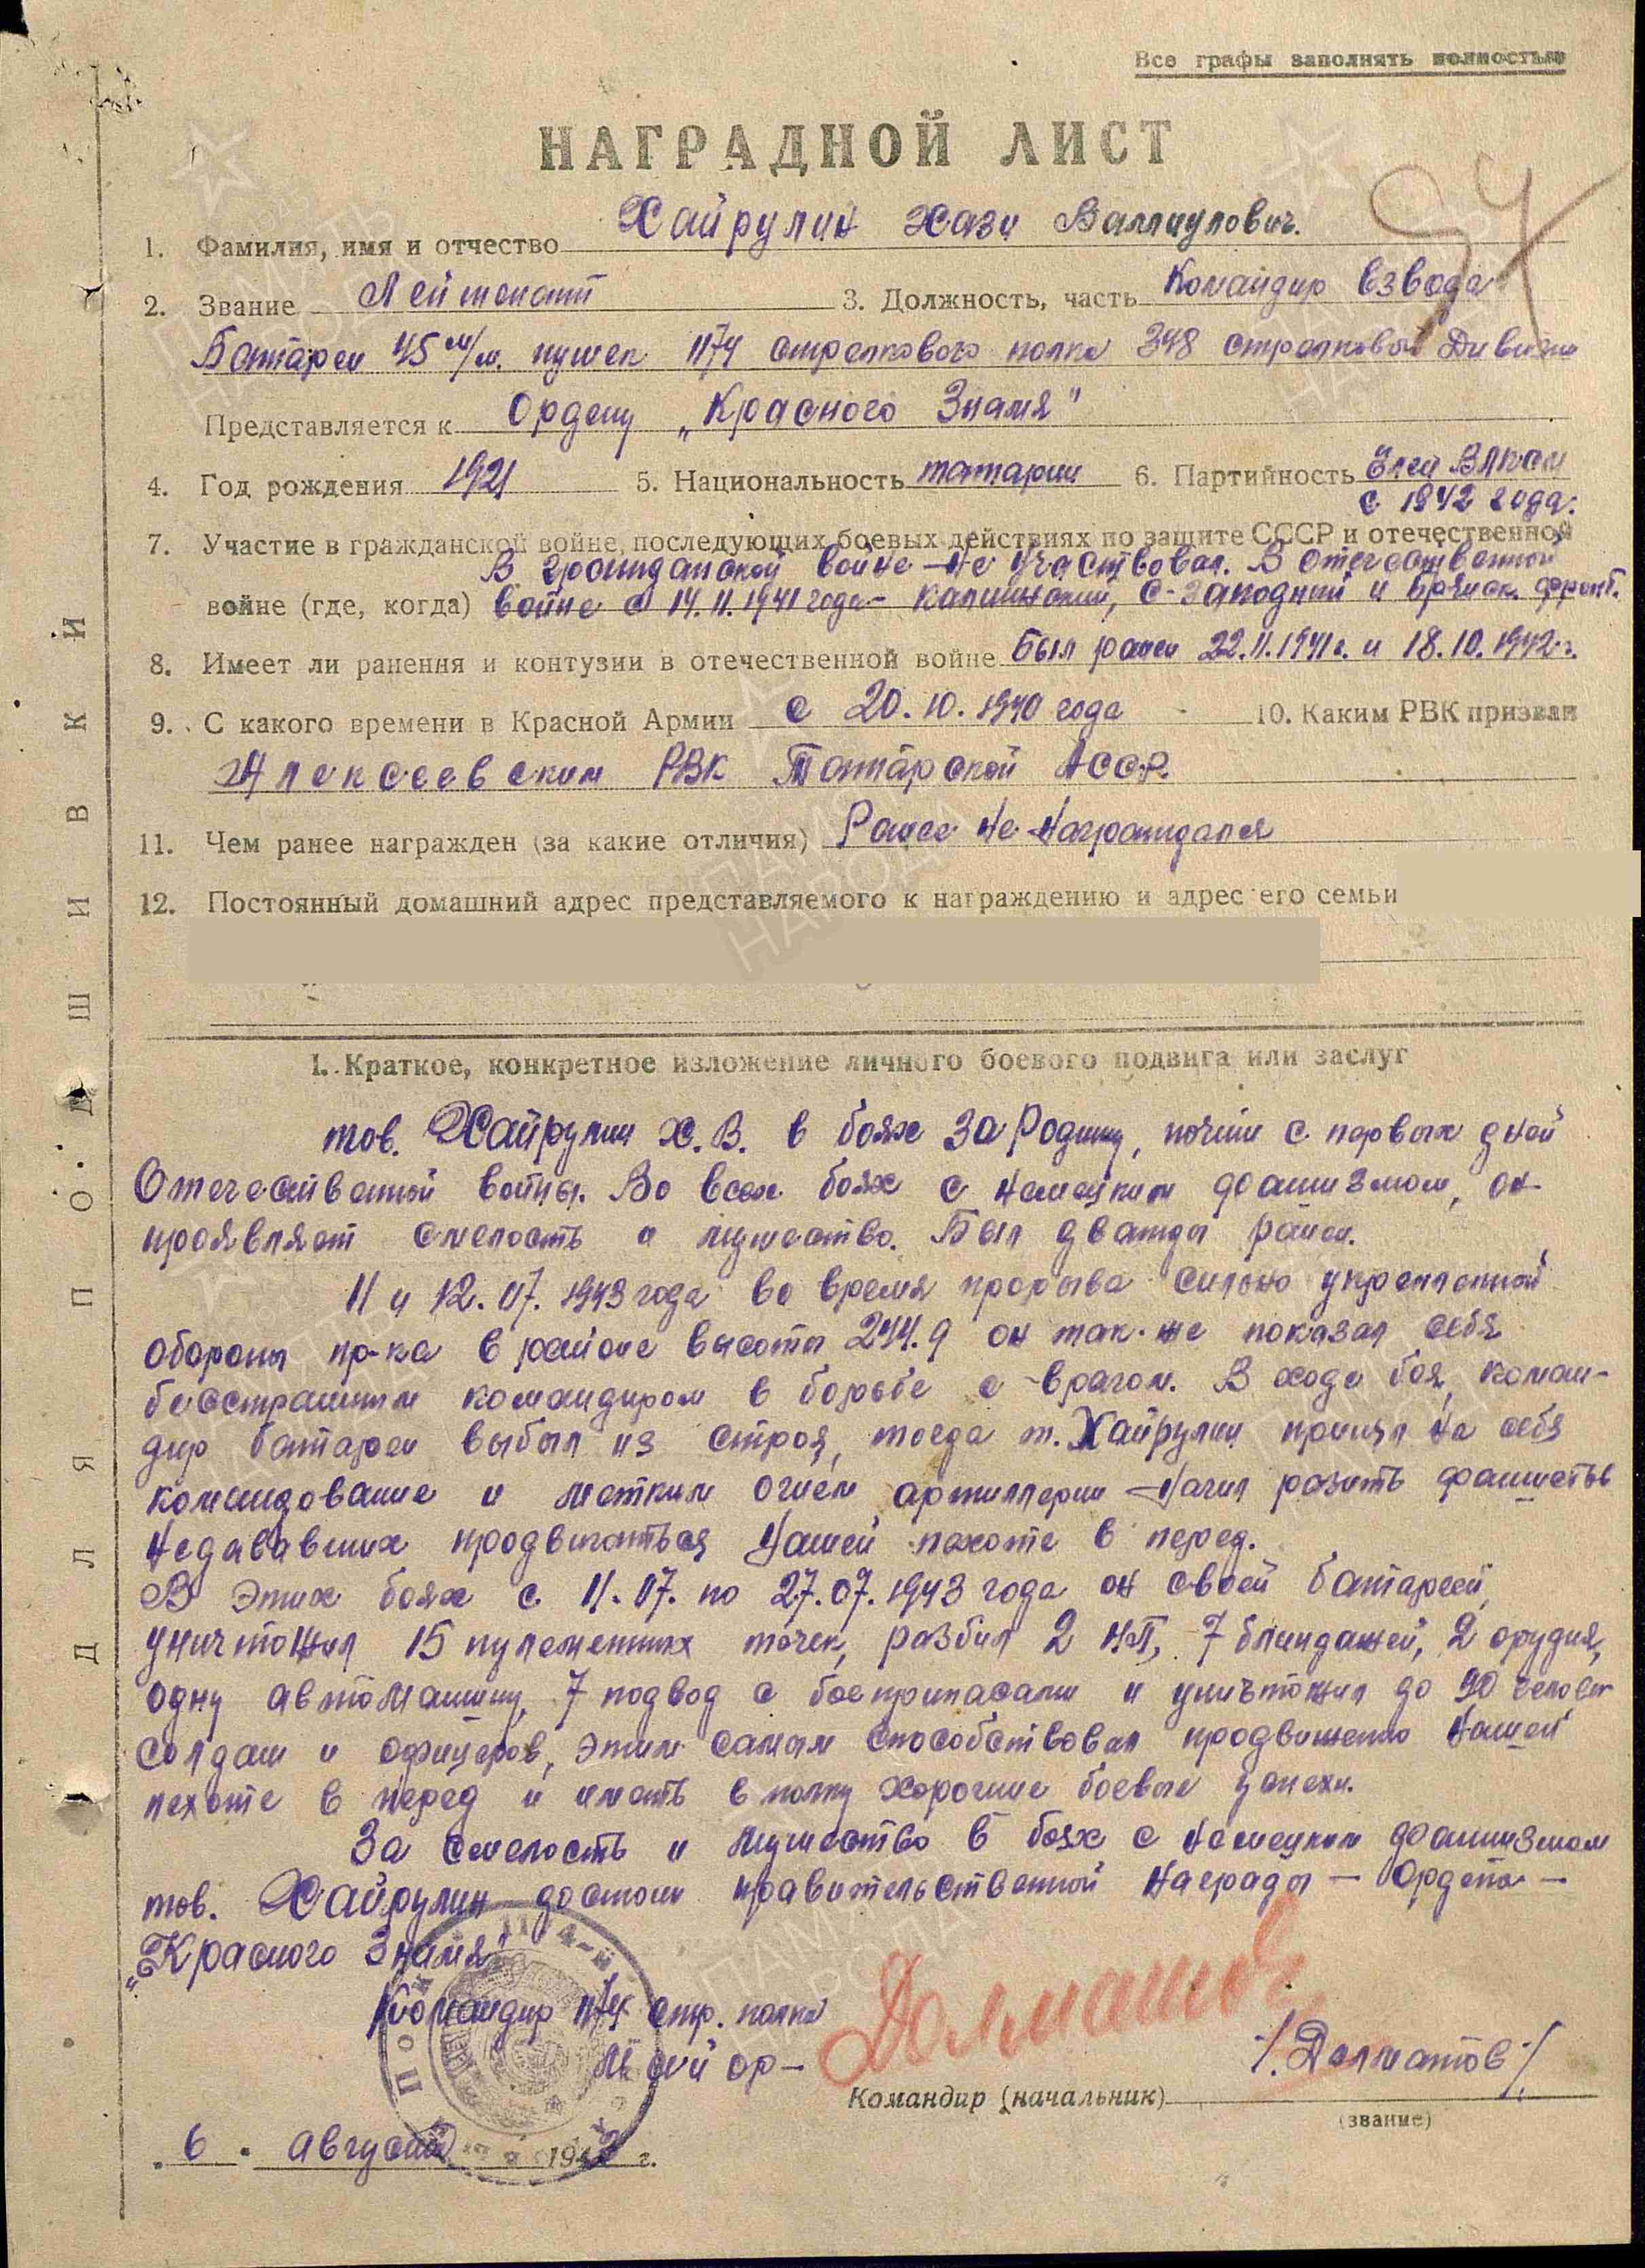 Все графы заполнять полностью
НАГРАДНОЙ ЛИСТ
1. Фамилия, имя и отчество Хайрулин Хази Валлиулович.
2. Звание Лейтенант 3. Должность, часть Командир взвода
Батареи 45 м/м. пушек 1174 стрелкового полка 348 стрелковый Дивизии
Представляется к Ордену „Красного Знамя"
4. Год рождения 1921 5. Национальность татарин 6. Партийность Член ВЛКСМ
с 1942 года.
7. Участие в гражданской войне, последующих боевых действиях по защите СССР и отечественной
В гражданской войне не участвовал. В отечественной
войне (где, когда) войне с 14.11.1941 года - Калининский, С-Западный и Брянск. фронт.
8. Имеет ли ранения и контузии в отечественной войне Был ранен 22.11.1941г. и 18.10.1942 г.
9. С какого времени в Красной Армии с 20.10.1940 года 10. Каким РВК призван
Алексеевским РВК Татарской АССР.
11. Чем ранее награжден (за какие отличия) Ранее не награждался
12. Постоянный домашний адрес представляемого к награждению и адрес его семьи
1. Краткое, конкретное изложение личного боевого подвига или заслуг
тов. Хайрулин Х.В. в боях за Родину, почти с первых дней
Отечественной войны. Во всех боях с немецким фашизмом, он
проявляет смелость и мужество. Был дважды ранен.
11 и 12.07.1943 года во время прорыва сильно укрепленной
обороны пр-ка в районе высоты 244.9 он так-же показал себя
бесстрашным командиром в борьбе с врагом. В ходе боя, коман-
дир батареи выбыл из строя, тогда т. Хайрулин принял на себя
командование и метким огнём артиллерии начил разить фашистов
недававших продвигаться нашей пехоте в перед.
В этих боях с 11.07. по 27.07.1943 года он своей батареей,
уничтожил 15 пулеметных точек, разбил 2 НП, 7 блиндажей, 2 орудия,
одну автомашину, 7 подвод с боеприпасами и уничтожил до 90 человек
солдат и офицеров, этим самым способствовал продвижению нашей
пехоте в перед и иметь в полку хорошие боевые успехи.
За смелость и мужество в боях с немецким фашизмом
тов. Хайрулин достоин правительственной награды - Ордена -
„Красного Знамя"
Командир 1174 стр. полка
Майор -
Долматов
/Долматов/
Командир (начальник)
(звание)
6 . августа 1943 г.
ДЛЯ ПОДШИВКИ